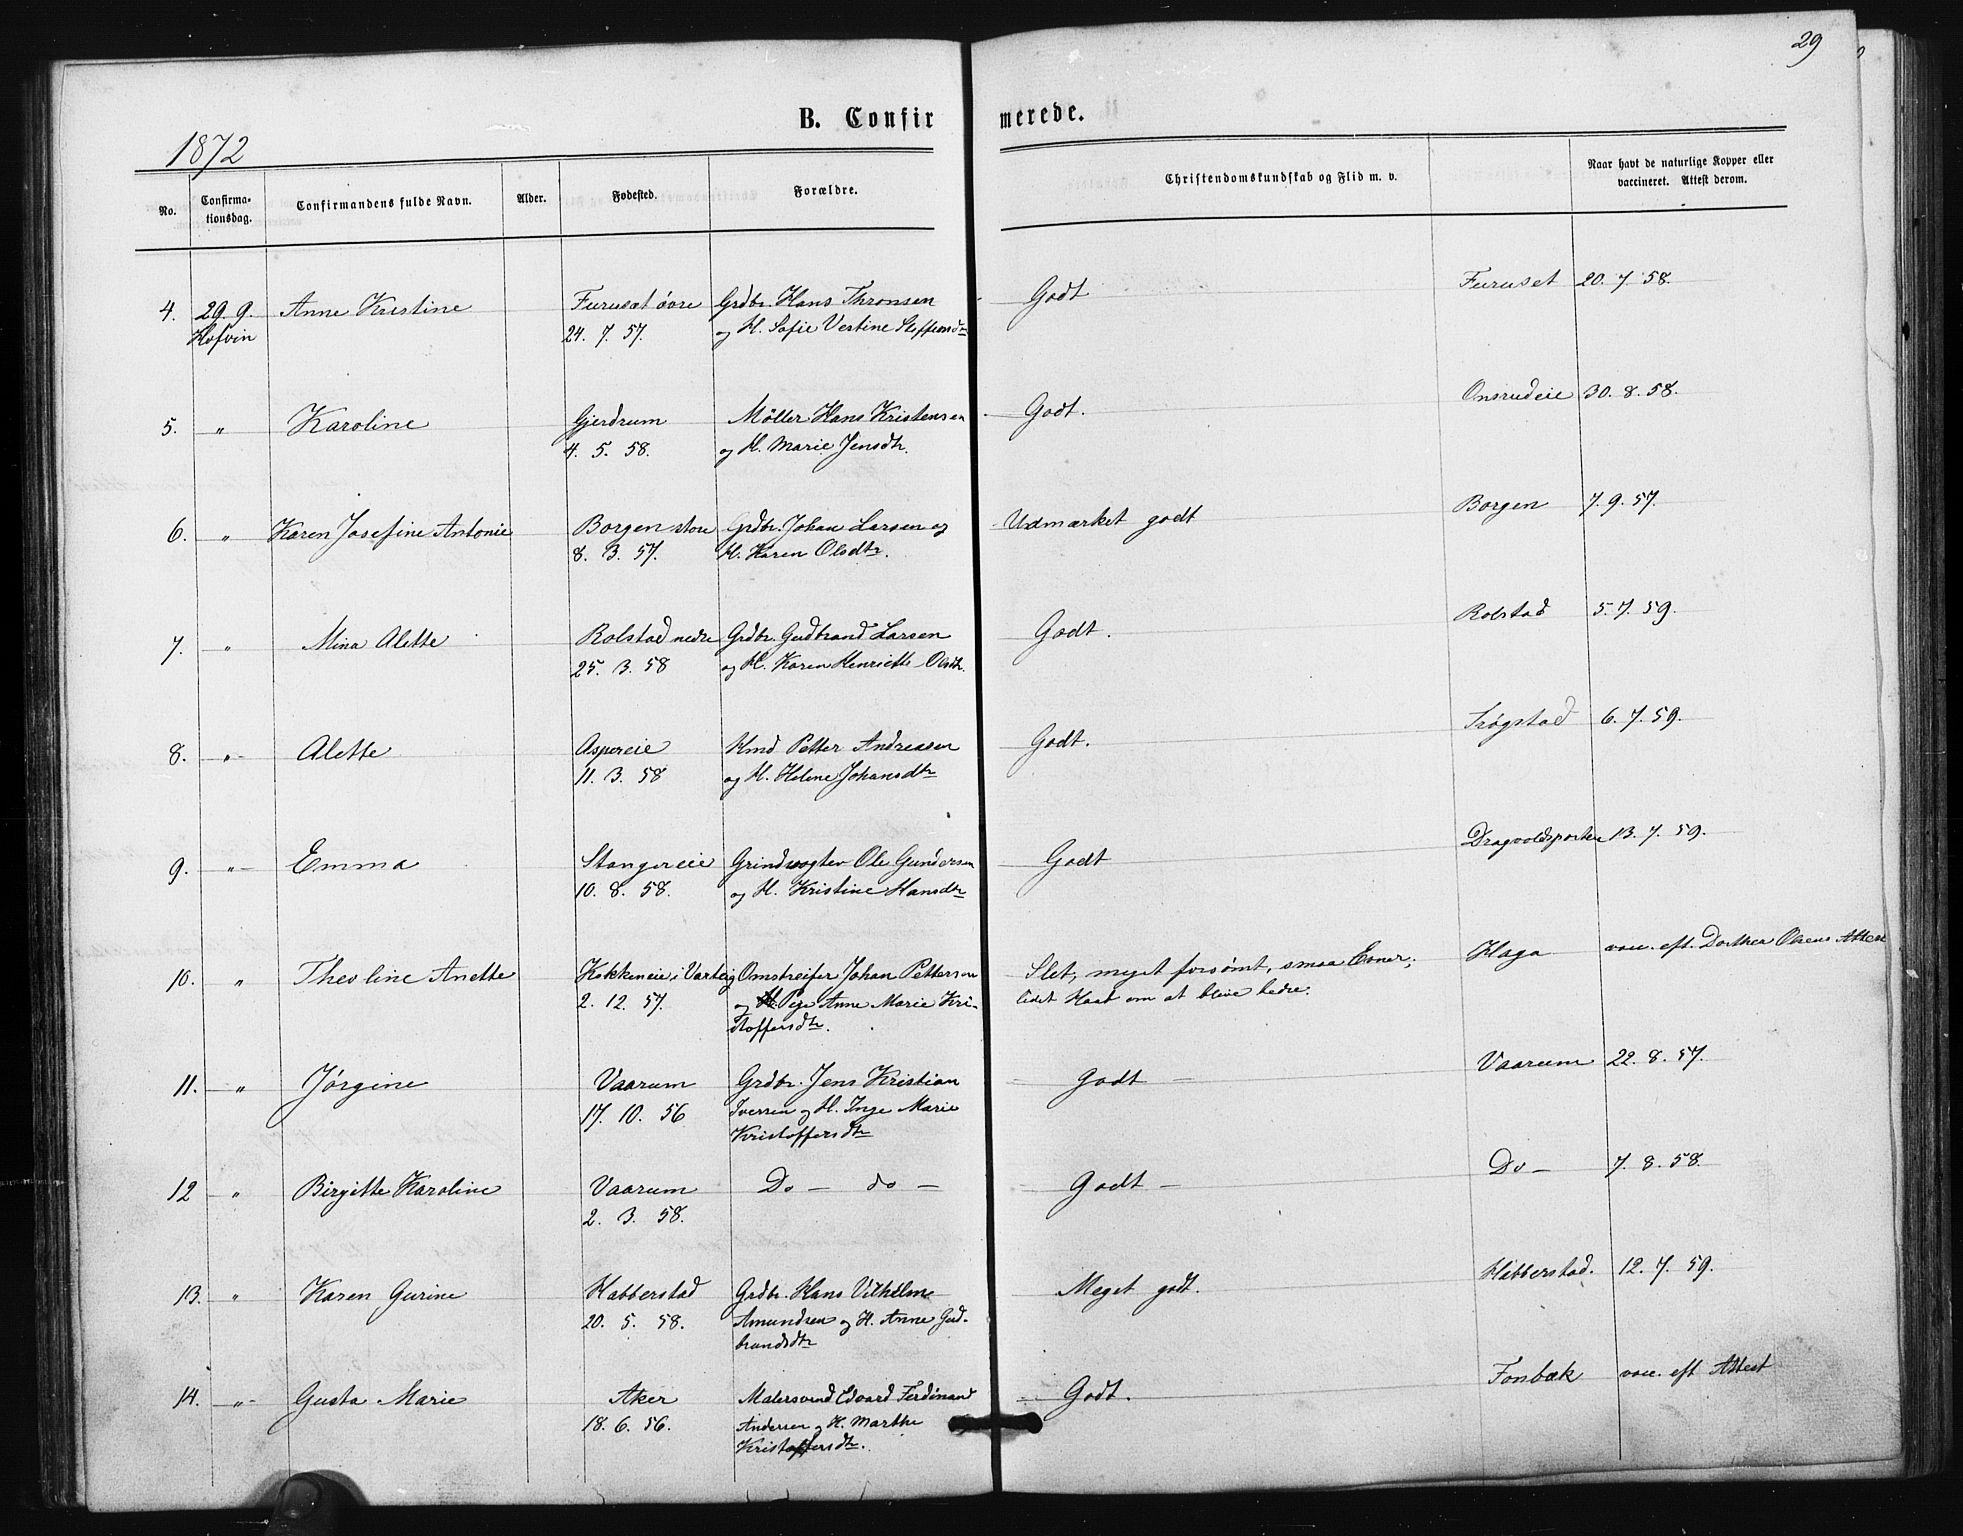 29
B. Confirmerede.
1872
No. Confirmationsdag. Confirmandens fulde Navn. Alder. Fødested. Forældre. Christendomskundskab og Flid m. v. Naar havt de naturlige Kopper eller vaccineret. Attest derom.
4. 29. 9. Anne Kristine Furuset övre Grdbr. Hans Thronsen Godt Furuset 20. 7. 58.
Hofvin 24. 7. 57. og H. Sofie Vestine Steffensdtr
5. " Karoline Gjerdrum Møller Hans Kristensen Godt. Onsrudeie 30. 8. 58.
4. 5. 58. og H. Marie Jensdtr.
6. " Karen Josefine Antonie Borgen store Grdbr. Johan Larsen og Udmærket godt Borgen 7. 9. 57.
8. 3. 57. H. Karen Olsdtr.
7. " Mina Alette Rolstad nedre Grdbr. Gudbrand Larsen Godt. Rolstad 5. 7. 59.
25. 3. 58 og H. Karen Henriette Olsdtr.
8. " Alette Aspereie Kmd Petter Andreasen Godt. Trøgstad 6. 7. 59.
11. 3. 58 og H. Helene Johansdtr
9. " Emma Stangereie Grindvogter Ole Gundersen Godt Dragvoldsporten 13. 7. 59.
10. 8. 58. og H. Kristine Hansdtr
10. " Theoline Anette Kokkeneie i Varteig Omstreifer Johan Petterson Slet, meget forsømt, smaa Evner; Haga vacc. eft. Dorthea Olsens Attest
2. 12. 57. og Pige Anne Marie Kri- lidet Haab om at blive bedre.
stoffersdtr.
11. " Jørgine Vaarum Grdbr. Jens Kristian Godt Vaarum 22. 8. 57.
17. 10. 56 Iversen og H. Inge Marie
Kristoffersdtr
12 " Birgitte Karoline Vaarum Do — do — Godt — Do — 7. 8. 58.
2. 3. 58.
13. " Karen Gurine Habberstad Grdbr. Hans Vilhelm Meget godt. Habberstad. 12. 7. 59.
20. 5. 58. Amundsen og H. Anne Gud-
brandsdtr
14. " Gusta Marie Aker Malersvend Edvard Ferdinand Godt. Fonbæk vacc. eft Attest
18. 6. 56. Andersen og H. Marthe
Kristoffersdtr.